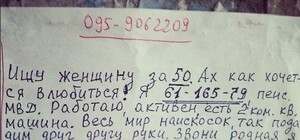 095-9062209
Ищу женщину за 50. Ах как хочет-
ся влюбиться! Я 61-165-79 пенс.
МВД. Работаю, активен есть 2х ком. кв.
машина. Весь мир наискосок, так пода-
дим друг другу руки. Звони родная